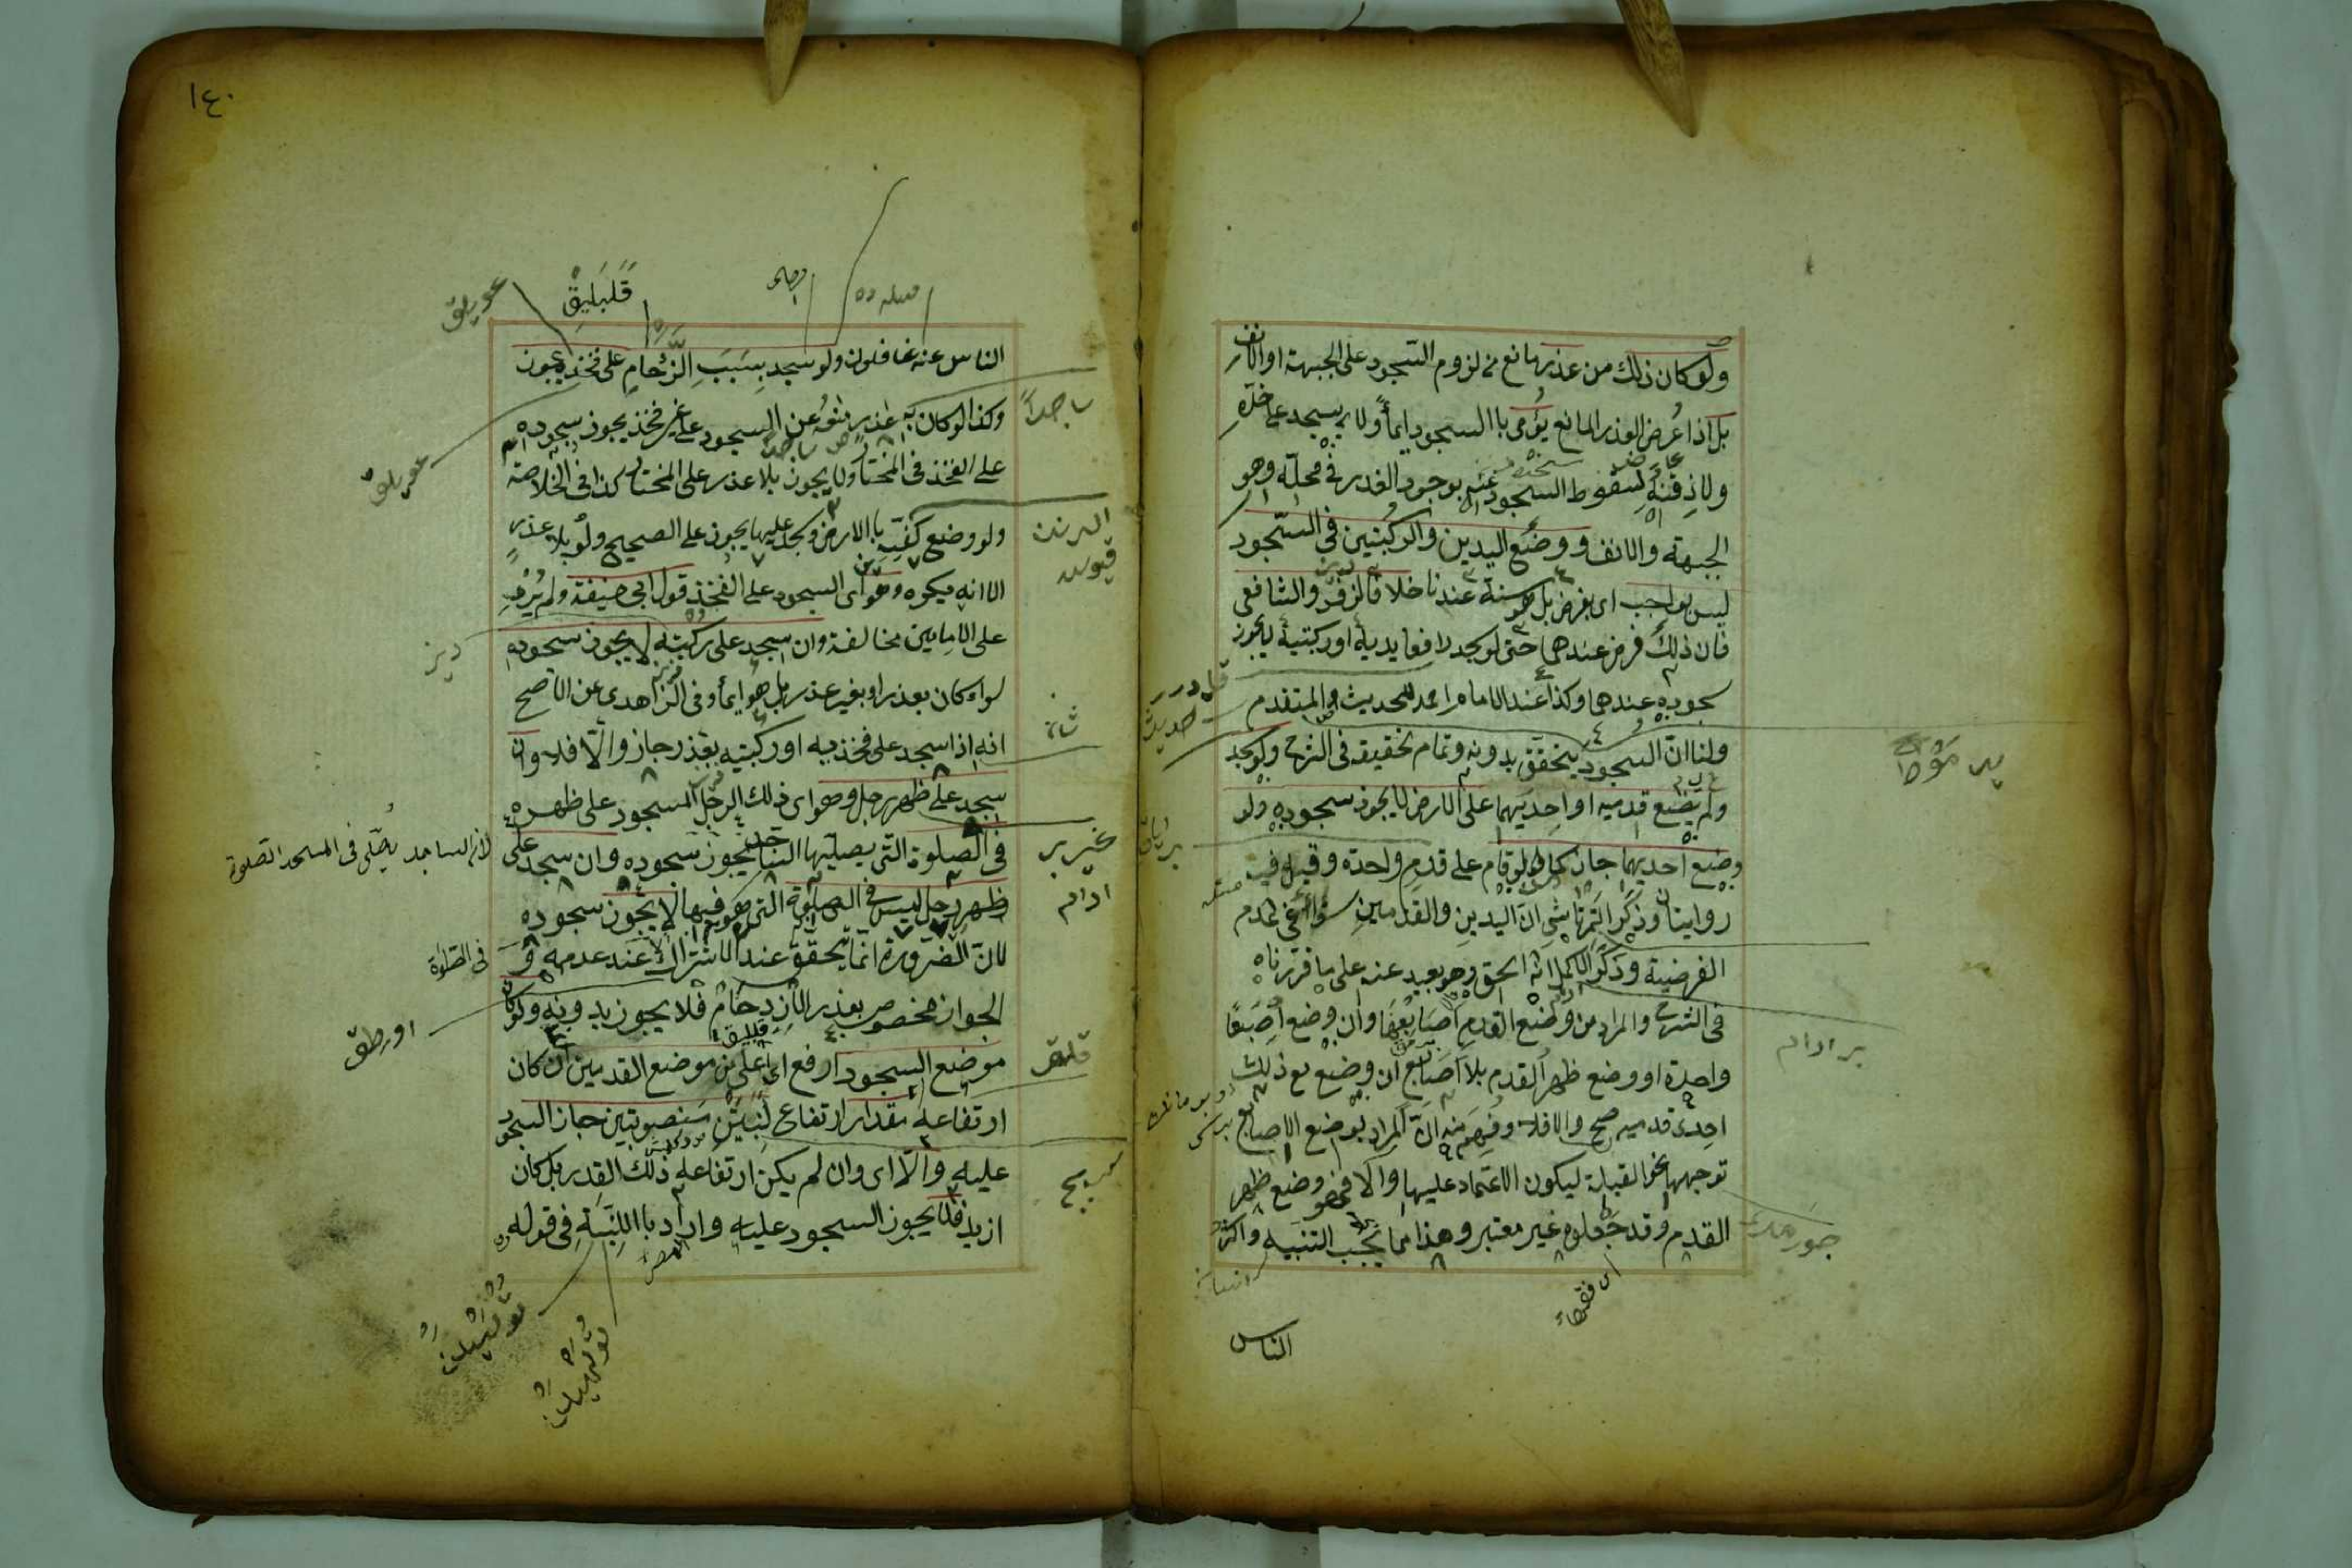 ولو كان ذلك من عذر مانع من لزوم السجود على الجبهة او الانف
بل اذا عرض العذر المانع يؤمى باالسجود ايماً ولا يسجد على خدّه
ولا ذقنه لسقوط السجود عنه بوجود العذر فى محلّه وهو
الجبهة والانف ووضع اليدين والركبتين فى السّجود
ليس بواجب اى بفرض بل هو سنة عندنا خلافا لزفر والشافعى
فان ذلك فرض عندهما حتى لو سجد رافعا يديه او ركبتيه لا يجوز
سجوده عندهما وكذا عند الامام احمد للحديث المتقدم
ولنا ان السجود يتحقق بدونه وتمام تحقيقه فى الشرح ولو سجد
ولم يضع قدميه او احديهما على الارض لا يجوز سجوده ولو
وضع احديهما جاز كما لو قام على قدم واحدة وقيل فيه
روايتان وذكر التمرتاشى ان اليدين والقدمين سواء فى عدم
الفرضية وذكر الاكمل انه الحق وهو بعيد عنه على ما قررناه
فى الشرح والمراد من وضع القدم اصابعها وان وضع اصبعًا
واحدة او وضع ظهر القدم بلا اصابع ان وضع مع ذلك
احدى قدميه صح والا فلا وفهم منه ان المراد بوضع الاصابع
توجهها نحو القبلة ليكون الاعتماد عليها والا فهو وضع ظهر
القدم وقد جعلوه غير معتبر وهذا مما يجب التنبيه واكثر
اى فقهاء
الناس
بر ادام
١٤٠
قَلَبَلِيقْ
الناس عنه غافلون ولو سجد بسبب الزحام على فخذه يجوز
وكذا لو كان به عذر منعه عن السجود على غير فخذ يجوز سجوده
على الفخذ فى المختار ولا يجوز بلا عذر على المختار كذا فى الخلاصة
ولو وضع كفيه باالارض وسجد عليهما يجوز على الصحيح ولو بلا عذر
الا انه يكره وهو اى السجود على الفخذ قول ابى حنيفة ولم يُرو
على الامامين مخالفة وان سجد على ركبته لا يجوز سجوده
سواء كان بعذر او بغير عذر بل هو ايماً وفى الزاهدى عن الاصح
انه اذا سجد على فخذيه او ركبتيه بعذر جاز والّا فلا وان
سجد على ظهر رجل وهو اى ذلك الرجل المسجود على ظهره
فى الصلوة التى يصليها الساجد يجوز سجوده وان سجد على
ظهر رجل ليس فى الصلوة التى هو فيها لا يجوز سجوده
لانّ الضرورة انّما يتحقق عند الاشتراك لا عند عدمه و
الجواز مخصوص بعذر الازدحام فلا يجوز بدونه ولو كان
موضع السجود ارفع اى اعلى من موضع القدمين ان كان
ارتفاعه مقدار ارتفاع لَبِنَتَيْن منصوبتين جاز السجود
عليه والّا اى وان لم يكن ارتفاعه ذلك القدر بل كان
ازيد فلا يجوز السجود عليه واراد باللِبَنَةِ فى قوله
ساجداً
دیز
غيرى بر
ادام
فى الصلوة